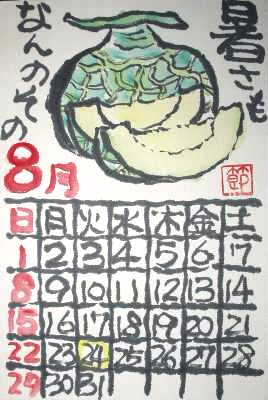 暑さも
なんのその
8月
日 月 火 水 木 金 土
1 2 3 4 5 6 7
8 9 10 11 12 13 14
15 16 17 18 19 20 21
22 23 24 25 26 27 28
29 30 31
節